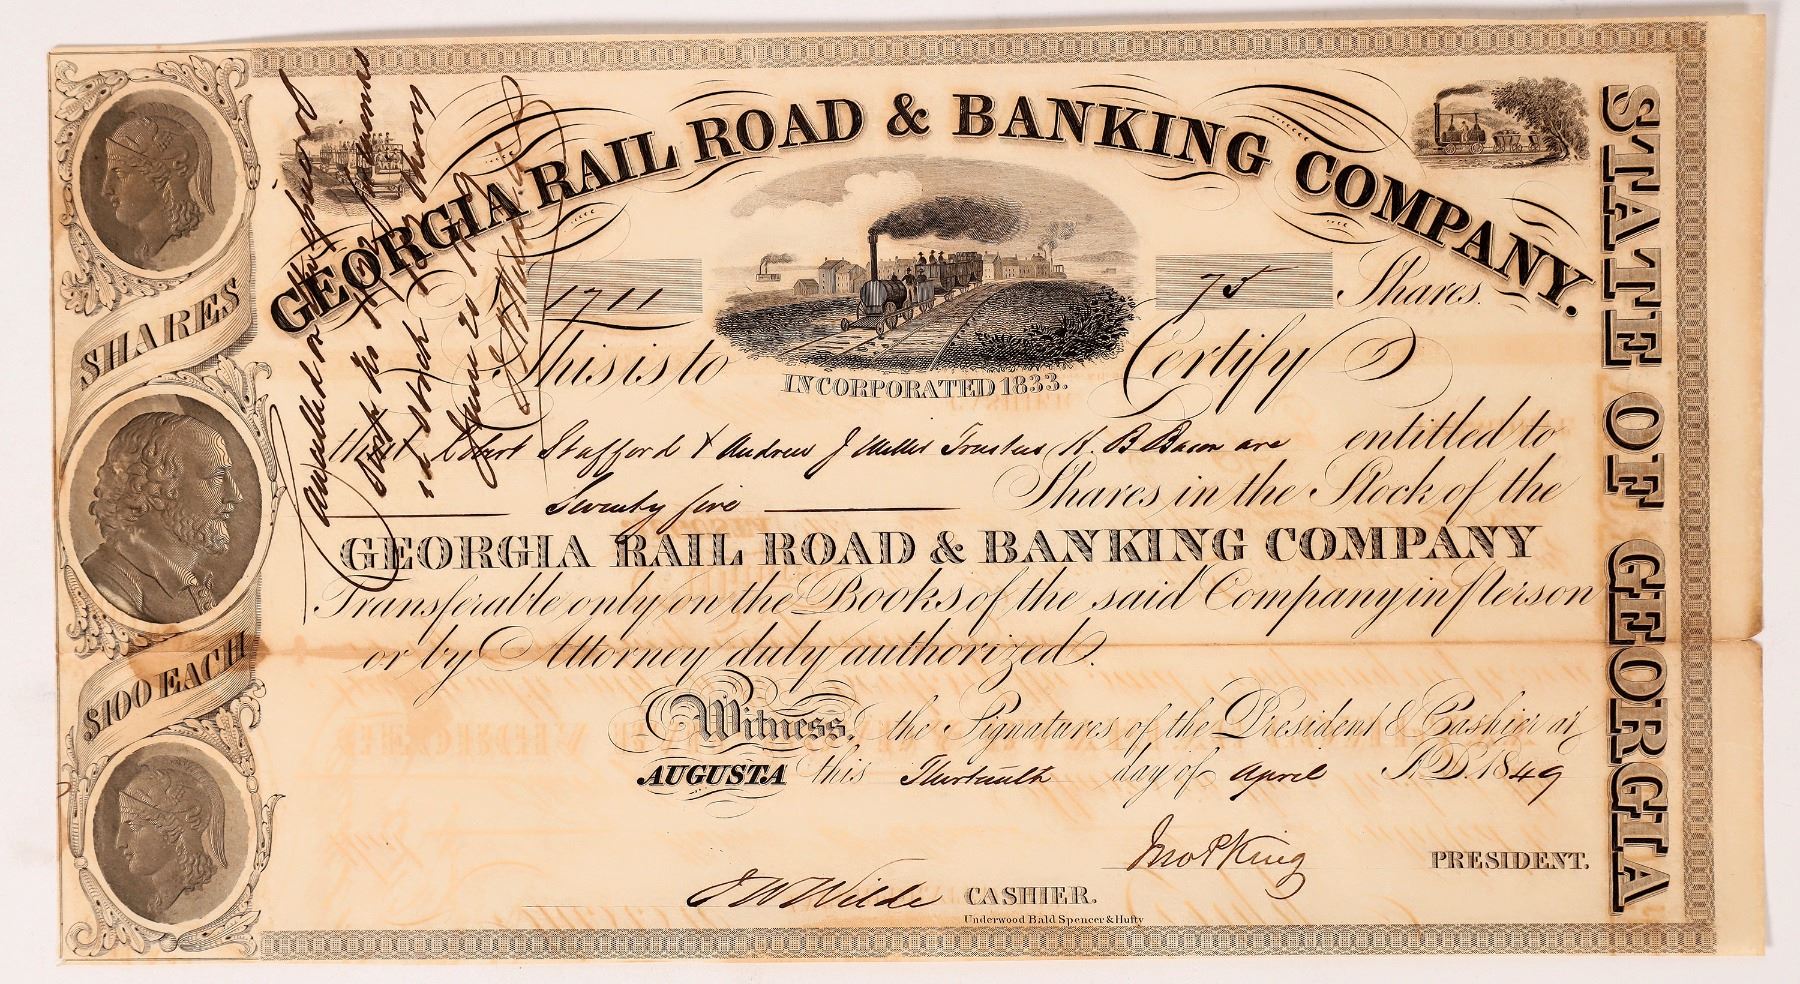 GEORGIA RAIL ROAD & BANKING COMPANY.
1711
75 Shares.
This is to Certify
INCORPORATED 1833.
that Robert Stafford & Andrew J Miller Trustees H. B Bacon are entitled to
Seventy five Shares in the Stock of the
GEORGIA RAIL ROAD & BANKING COMPANY
Transferable only on the Books of the said Company in person
or by Attorney duly authorized.
Witness, the Signatures of the President & Cashier at
AUGUSTA this Thirteenth day of April A.D. 1849
Jno P King PRESIDENT.
J W Wilde CASHIER.
Underwood Bald Spencer & Hufty
SHARES
$100 EACH
STATE OF GEORGIA
Cancelled
Book
Stock
June 20